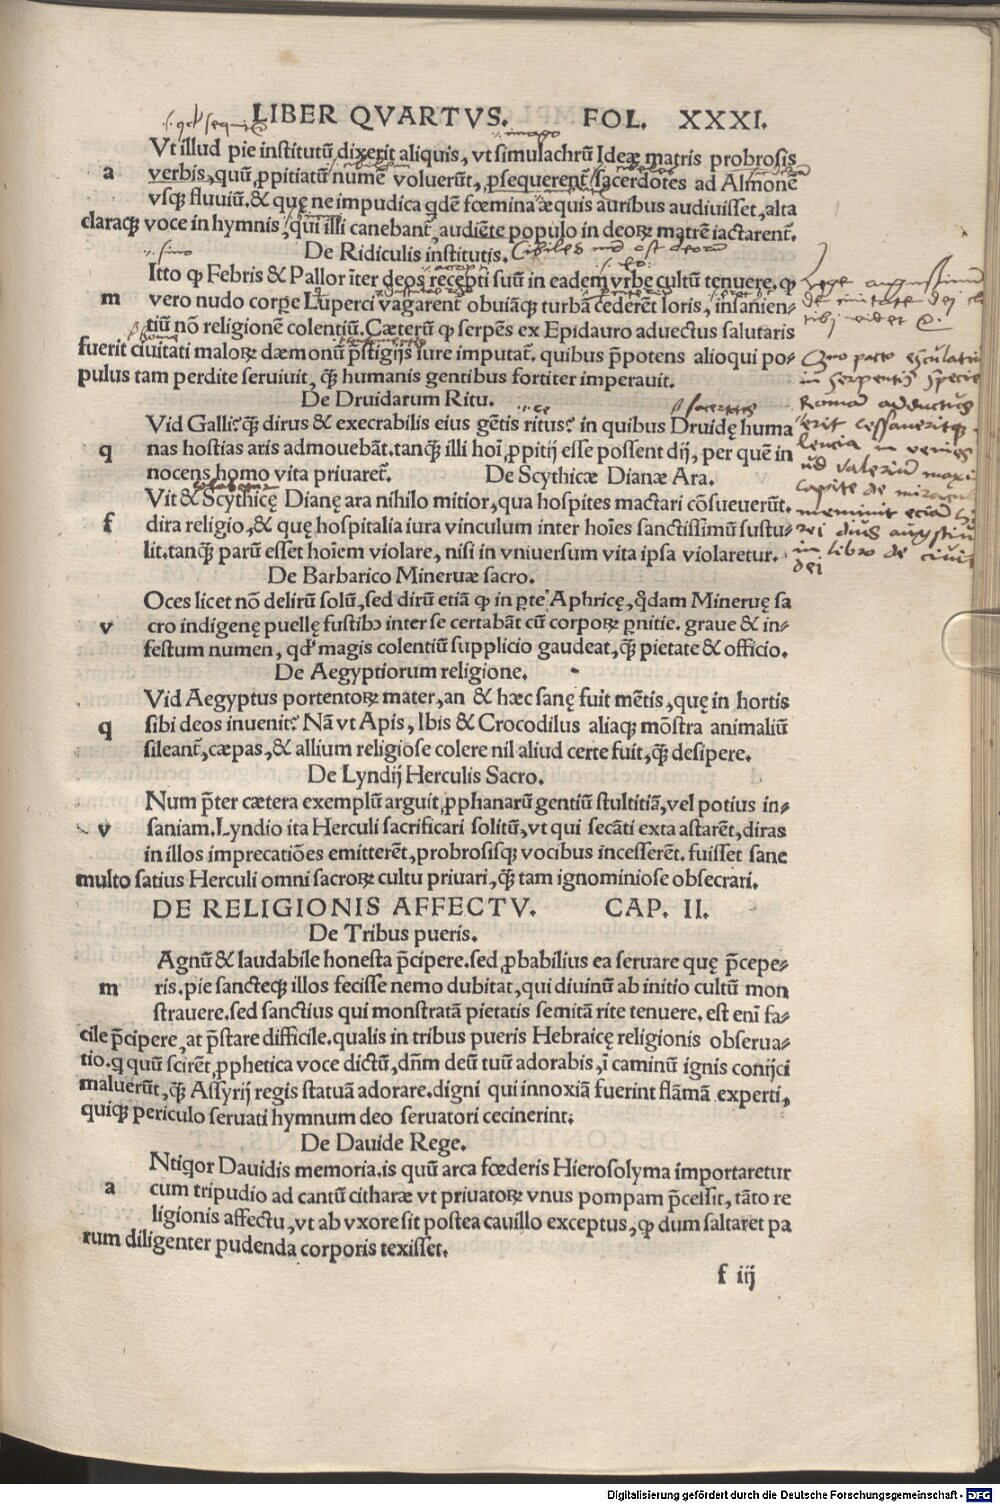 LIBER QVARTVS. FOL. XXXI.
Vt illud pie institutū dixerit aliquis, vt simulachrū Ideæ matris probrosis
a verbis, quū ꝓpitiatū numē voluerūt, ꝓsequerenť sacerdotes ad Almonē
vsqꝫ fluuiū. & quę ne impudica qdē fœmina æquis auribus audiuisset, alta
claraqꝫ voce in hymnis, qui illi canebanť, audiēte populo in deoꝝ matrē iactarenť.
De Ridiculis institutis. Cibeles
Itto ꝙ Febris & Pallor īter deos recepti suū in eadem vrbe cultū tenuere. ꝙ
m vero nudo corꝑe Luperci vagarenť obuiāqꝫ turbā cederēt loris, insanien-
tiū nō religionē colentiū. Cæterū ꝙ serpēs ex Epidauro aduectus salutaris
fuerit ciuitati maloꝝ dæmonū p̄stigijs iure imputať. quibus p̄potens alioqui po-
pulus tam perdite seruiuit, qꝫ̄ humanis gentibus fortiter imperauit.
De Druidarum Ritu.
Vid Galli? qꝫ̄ dirus & execrabilis eius gētis ritus? in quibus Druidę huma
q nas hostias aris admouebāt. tanqꝫ̄ illi hoī ꝓpitij esse possent dij, per quē in
nocens homo vita priuareť. De Scythicæ Dianæ Ara.
Vit & Scythicę Dianę ara nihilo mitior, qua hospites mactari cōsueuerūt.
f dira religio, & quę hospitalia iura vinculum inter hoīes sanctissimū sustu-
lit. tanqꝫ̄ parū esset hoīem violare, nisi in vniuersum vita ipsa violaretur.
De Barbarico Mineruæ sacro.
Oces licet nō delirū solū, sed dirū etiā ꝙ in ꝑte Aphricę, qdam Mineruę sa
v cro indigenę puellę fustibꝫ inter se certabāt cū corpoꝝ ꝑnitie. graue & in-
festum numen, qđ magis colentiū supplicio gaudeat, qꝫ̄ pietate & officio.
De Aegyptiorum religione.
Vid Aegyptus portentoꝝ mater, an & hæc sanę fuit mētis, quę in hortis
q sibi deos inuenit? Nā vt Apis, Ibis & Crocodilus aliaqꝫ mōstra animaliū
sileanť, cæpas, & allium religiose colere nil aliud certe fuit, qꝫ̄ desipere.
De Lyndij Herculis Sacro.
Num p̄ter cætera exemplū arguit ꝓphanarū gentiū stultitiā, vel potius in-
v saniam. Lyndio ita Herculi sacrificari solitū, vt qui secāti exta astarēt, diras
in illos imprecatiōes emitterēt, probrosisqꝫ vocibus incesserēt. fuisset sane
multo satius Herculi omni sacroꝝ cultu priuari, qꝫ̄ tam ignominiose obsecrari.
DE RELIGIONIS AFFECTV. CAP. II.
De Tribus pueris.
Agnū & laudabile honesta p̄cipere. sed ꝓbabilius ea seruare quę p̄cepe-
m ris. pie sancteqꝫ illos fecisse nemo dubitat, qui diuinū ab initio cultū mon
strauere. sed sanctius qui monstratā pietatis semitā rite tenuere. est enī fa-
cile p̄cipere, at p̄stare difficile. qualis in tribus pueris Hebraicę religionis obserua-
tio. q quū scirēt ꝓphetica voce dictū, dn̄m deū tuū adorabis, ī caminū ignis conijci
maluerūt, qꝫ̄ Assyrij regis statuā adorare. digni qui innoxiā fuerint flāmā experti,
quiqꝫ periculo seruati hymnum deo seruatori cecinerint.
De Dauide Rege.
Ntiqor Dauidis memoria. is quū arca fœderis Hierosolyma importaretur
a cum tripudio ad cantū citharæ vt priuatoꝝ vnus pompam p̄cessit, tāto re
ligionis affectu, vt ab vxore sit postea cauillo exceptus, ꝙ dum saltaret pa
rum diligenter pudenda corporis texisset.
f iij
de ciuitate dei
Quo pacto
in serpentis specie
Roma aductus
meminit
in libro de ciuit
dei
Digitalisierung gefördert durch die Deutsche Forschungsgemeinschaft - DFG